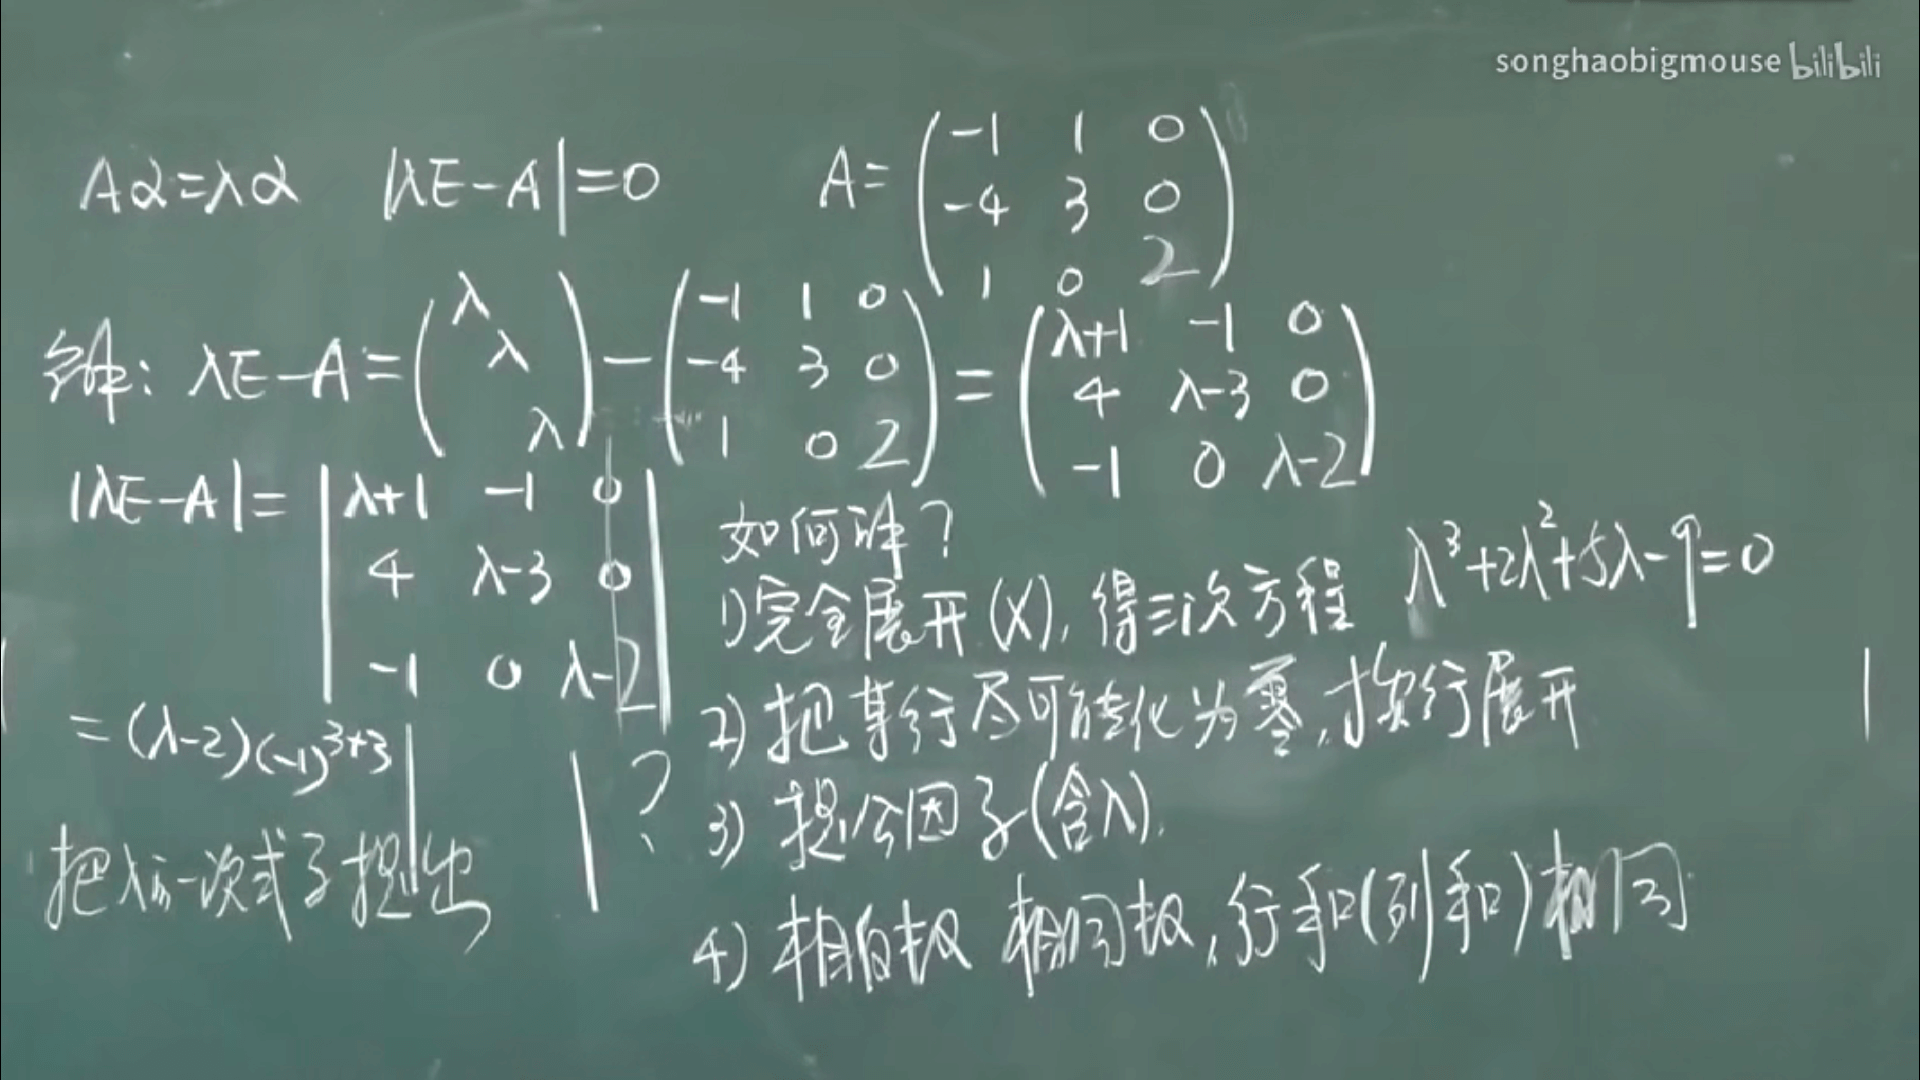 songhaobigmouse bilibili
Aα=λα |λE-A|=0 A= (-1 1 0
-4 3 0
1 0 2)
解: λE-A= (λ
λ
λ) - (-1 1 0
-4 3 0
1 0 2) = (λ+1 -1 0
4 λ-3 0
-1 0 λ-2)
|λE-A|= |λ+1 -1 0
4 λ-3 0
-1 0 λ-2|
=(λ-2)(-1)³⁺³| | ?
把λ的一次式子提出
如何解?
1)完全展开(X),得三次方程 λ³+2λ²+5λ-9=0
2)把某行尽可能化为零,按行展开
3)提公因子(含λ).
4)相似找 相同找,行和(列和)相同